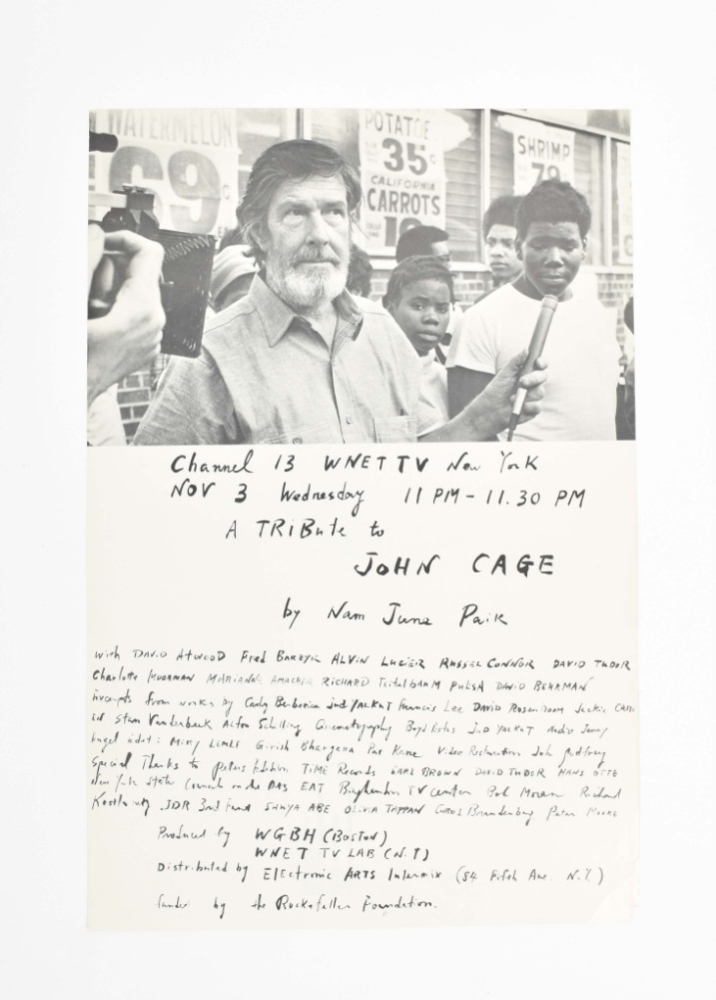 WATERMELON
69
POTATOE
35¢
CALIFORNIA
CARROTS
SHRIMP
79
Channel 13 WNET TV New York
NOV 3 Wednesday 11 PM - 11.30 PM
A TRiBute to
JOHN CAGE
by Nam June Paik
with DAVID Atwood Fred Barzyk ALVIN Lucier Russel Connor DAVID TuDOR
Charlotte Moorman MARIANNE AMACHER RICHARD Teitelbaum PULSA DAVID BEHRMAN
from works by Jud YALKUT Francis Lee DAVID Rosenboom Jackie
Stan Vanderbeek Schilling Cinematography Jud Yalkut Audio
LEWIS Girish Bhargava Video John Godfrey
Special Thanks to Peters Edition TIME Records EARL BROWN DAVID TUDOR HANS OTTE
New York State Council on the Arts EAT Binghamton TV center Richard
JDR 3rd Fund SHUYA ABE OLIVIA TAPPAN Carol Brandenburg Peter Moore
Produced by WGBH (Boston)
WNET TV LAB (N.Y)
Distributed by Electronic ARTS Intermix (84 Fifth Ave. N.Y.)
by the Rockefeller Foundation.